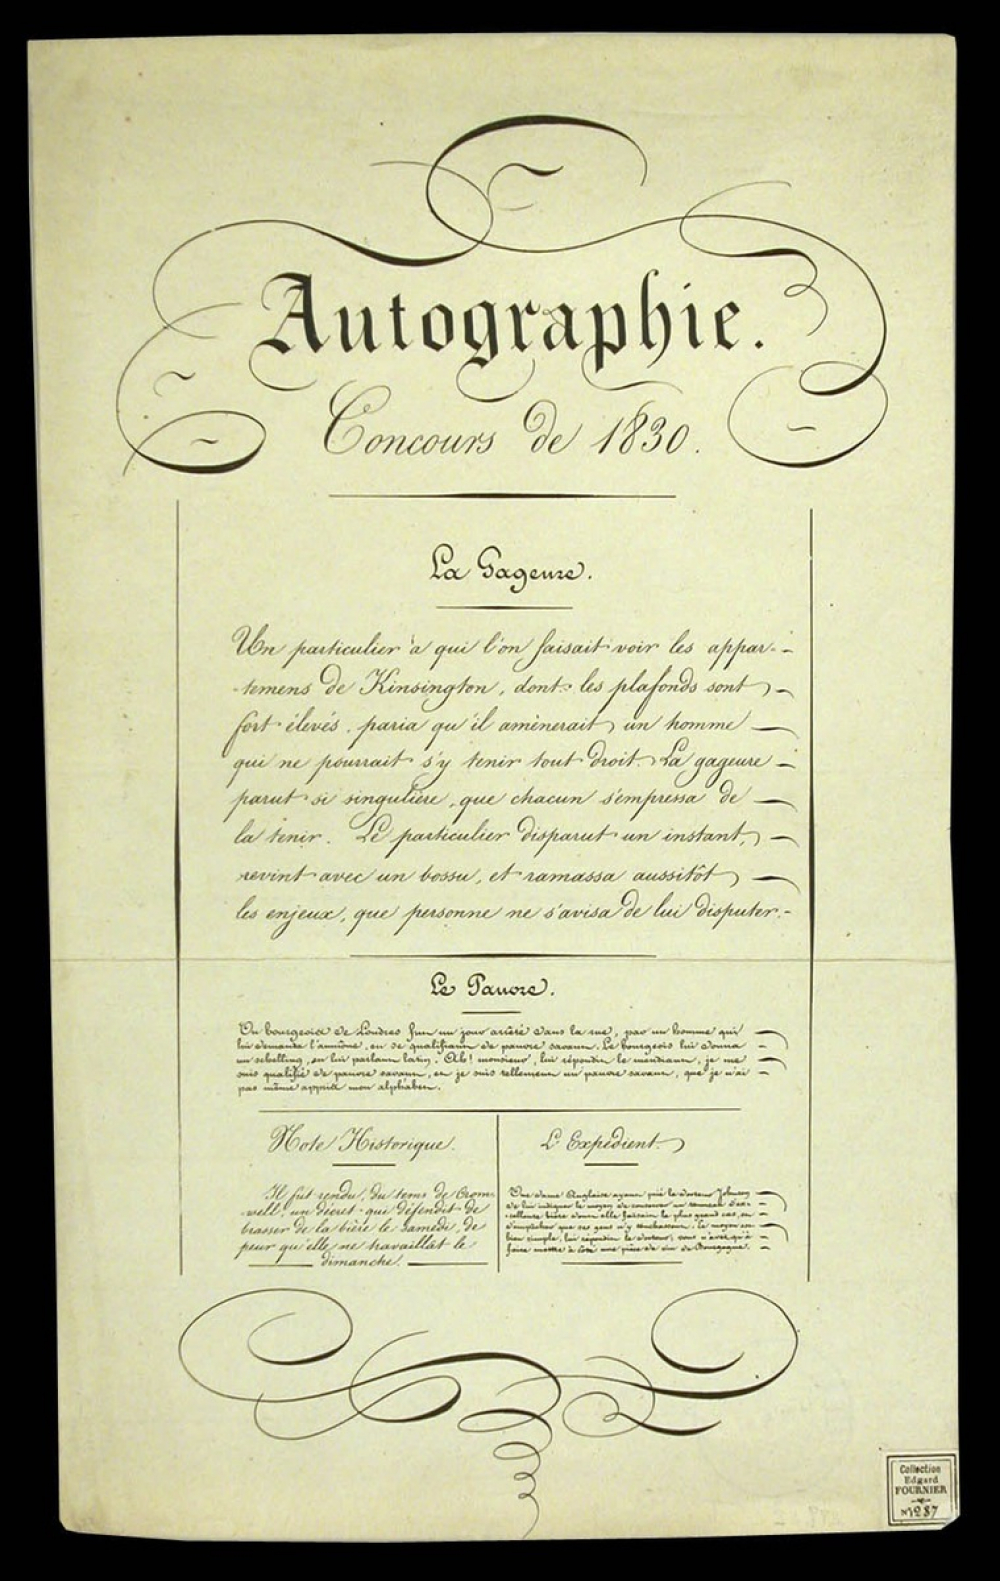 Autographie.
Concours de 1830.
La Gageure.
Un particulier à qui l'on faisait voir les appar-
temens de Kinsington, dont les plafonds sont
fort élevés, paria qu'il amènerait un homme
qui ne pourrait s'y tenir tout droit. La gageure
parut si singulière, que chacun s'empressa de
la tenir. Le particulier disparut un instant,
revint avec un bossu, et ramassa aussitôt
les enjeux, que personne ne s'avisa de lui disputer.
Le Pauvre.
Un bourgeois de Londres fut un jour arrêté dans la rue, par un homme qui
lui demanda l'aumône, en se qualifiant de pauvre savant. Le bourgeois lui donna
un schelling, en lui parlant latin. Ah! monsieur, lui répondit le mendiant, je me
suis qualifié de pauvre savant, et je suis tellement un pauvre savant, que je n'ai
pas même appris mon alphabet.
Note Historique.
Il fut rendu, du tems de Crom-
well, un décret qui défendit de
brasser de la bière le Samedi, de
peur qu'elle ne travaillât le
dimanche.
L'Expédient
Une dame Anglaise ayant prié le docteur Johnson
de lui indiquer le moyen de conserver un tonneau d'ex-
cellente bière dont elle faisait le plus grand cas, et
d'empêcher que ses gens n'y touchassent; le moyen est
bien simple, lui répondit le docteur; vous n'avez qu'à
faire mettre à côté une pièce de vin de Bourgogne.
Collection
Edgard
FOURNIER
N° 1287